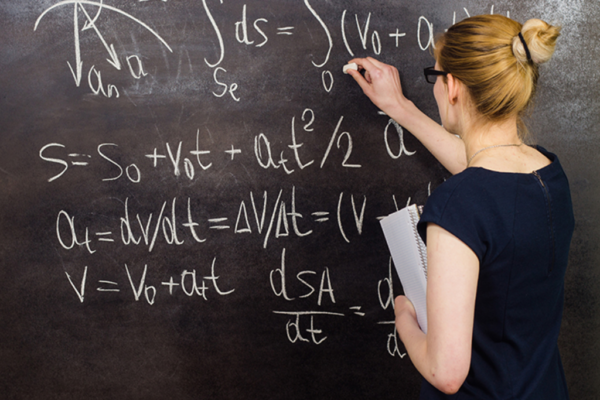 aₙ a
∫ ds = ∫ (V₀ + a
Se 0
S = S₀ + V₀t + aₜt²/2 a
aₜ = dV/dt = ΔV/Δt = (V
V = V₀ + aₜt dSA/dt = d/d